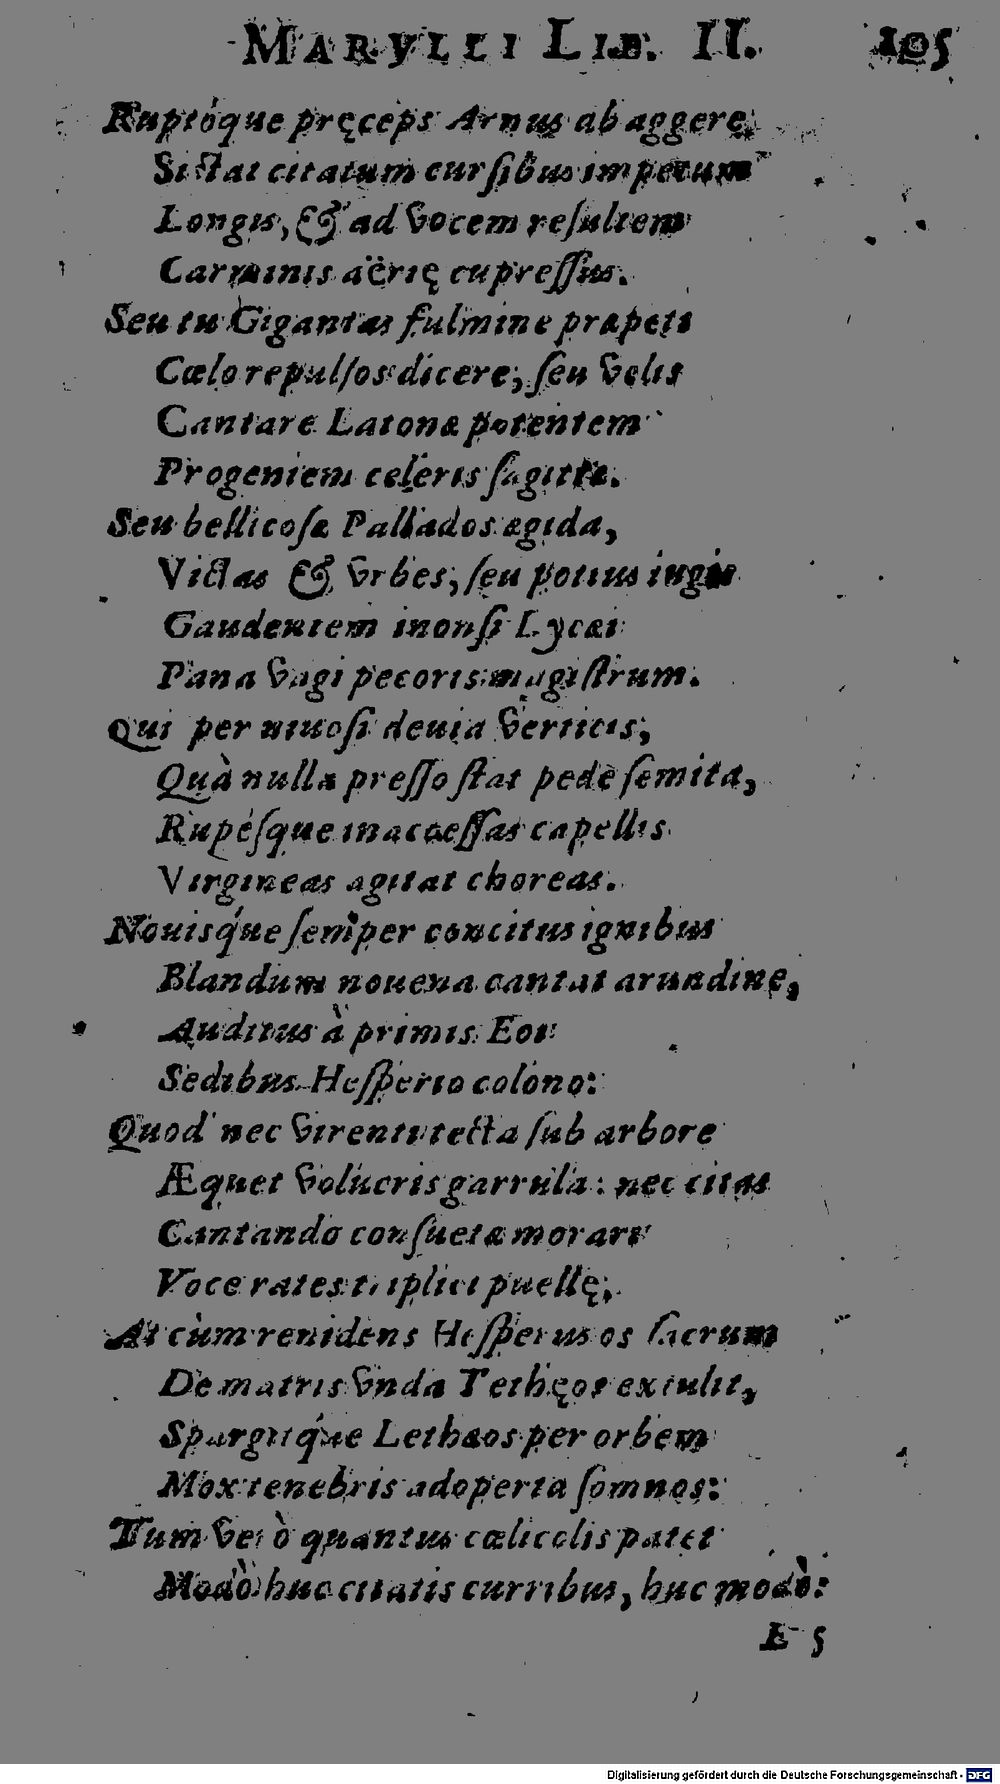 MARVLLI LIB. II. 105
Ruptóque pręceps Arnus ab aggere
Sistat citatum cursibus impetum
Longis, & ad vocem resultem
Carminis aërię cupressus.
Seu tu Gigantas fulmine præpeti
Cælo repulsos dicere, seu velis
Cantare Latonæ potentem
Progeniem celeris sagittæ.
Seu bellicosæ Pallados ægida,
Victas & vrbes; seu potius iugis
Gaudentem inonsi Lycæi
Pana vagi pecoris magistrum.
Qui per niuosi deuia verticis,
Quà nulla presso stat pede semita,
Rupésque inaccessas capellis
Virgineas agitat choreas.
Nouisq́ue semper concitus ignibus
Blandum nouena cantat arundine,
Auditus à primis Eoi
Sedibus Hesperio colono:
Quod nec virenti tecta sub arbore
Æquet volucris garrula: nec citas
Cantando consuetæ morari
Voce rates triplici puellę;
At cùm renidens Hesperus os sacrum
De matris vnda Tethęos extulit,
Spargitq́ue Lethæos per orbem
Mox tenebris adoperta somnos:
Tum verò quantus cælicolis patet
Modò huc citatis curribus, huc modò:
E 5
Digitalisierung gefördert durch die Deutsche Forschungsgemeinschaft - DFG